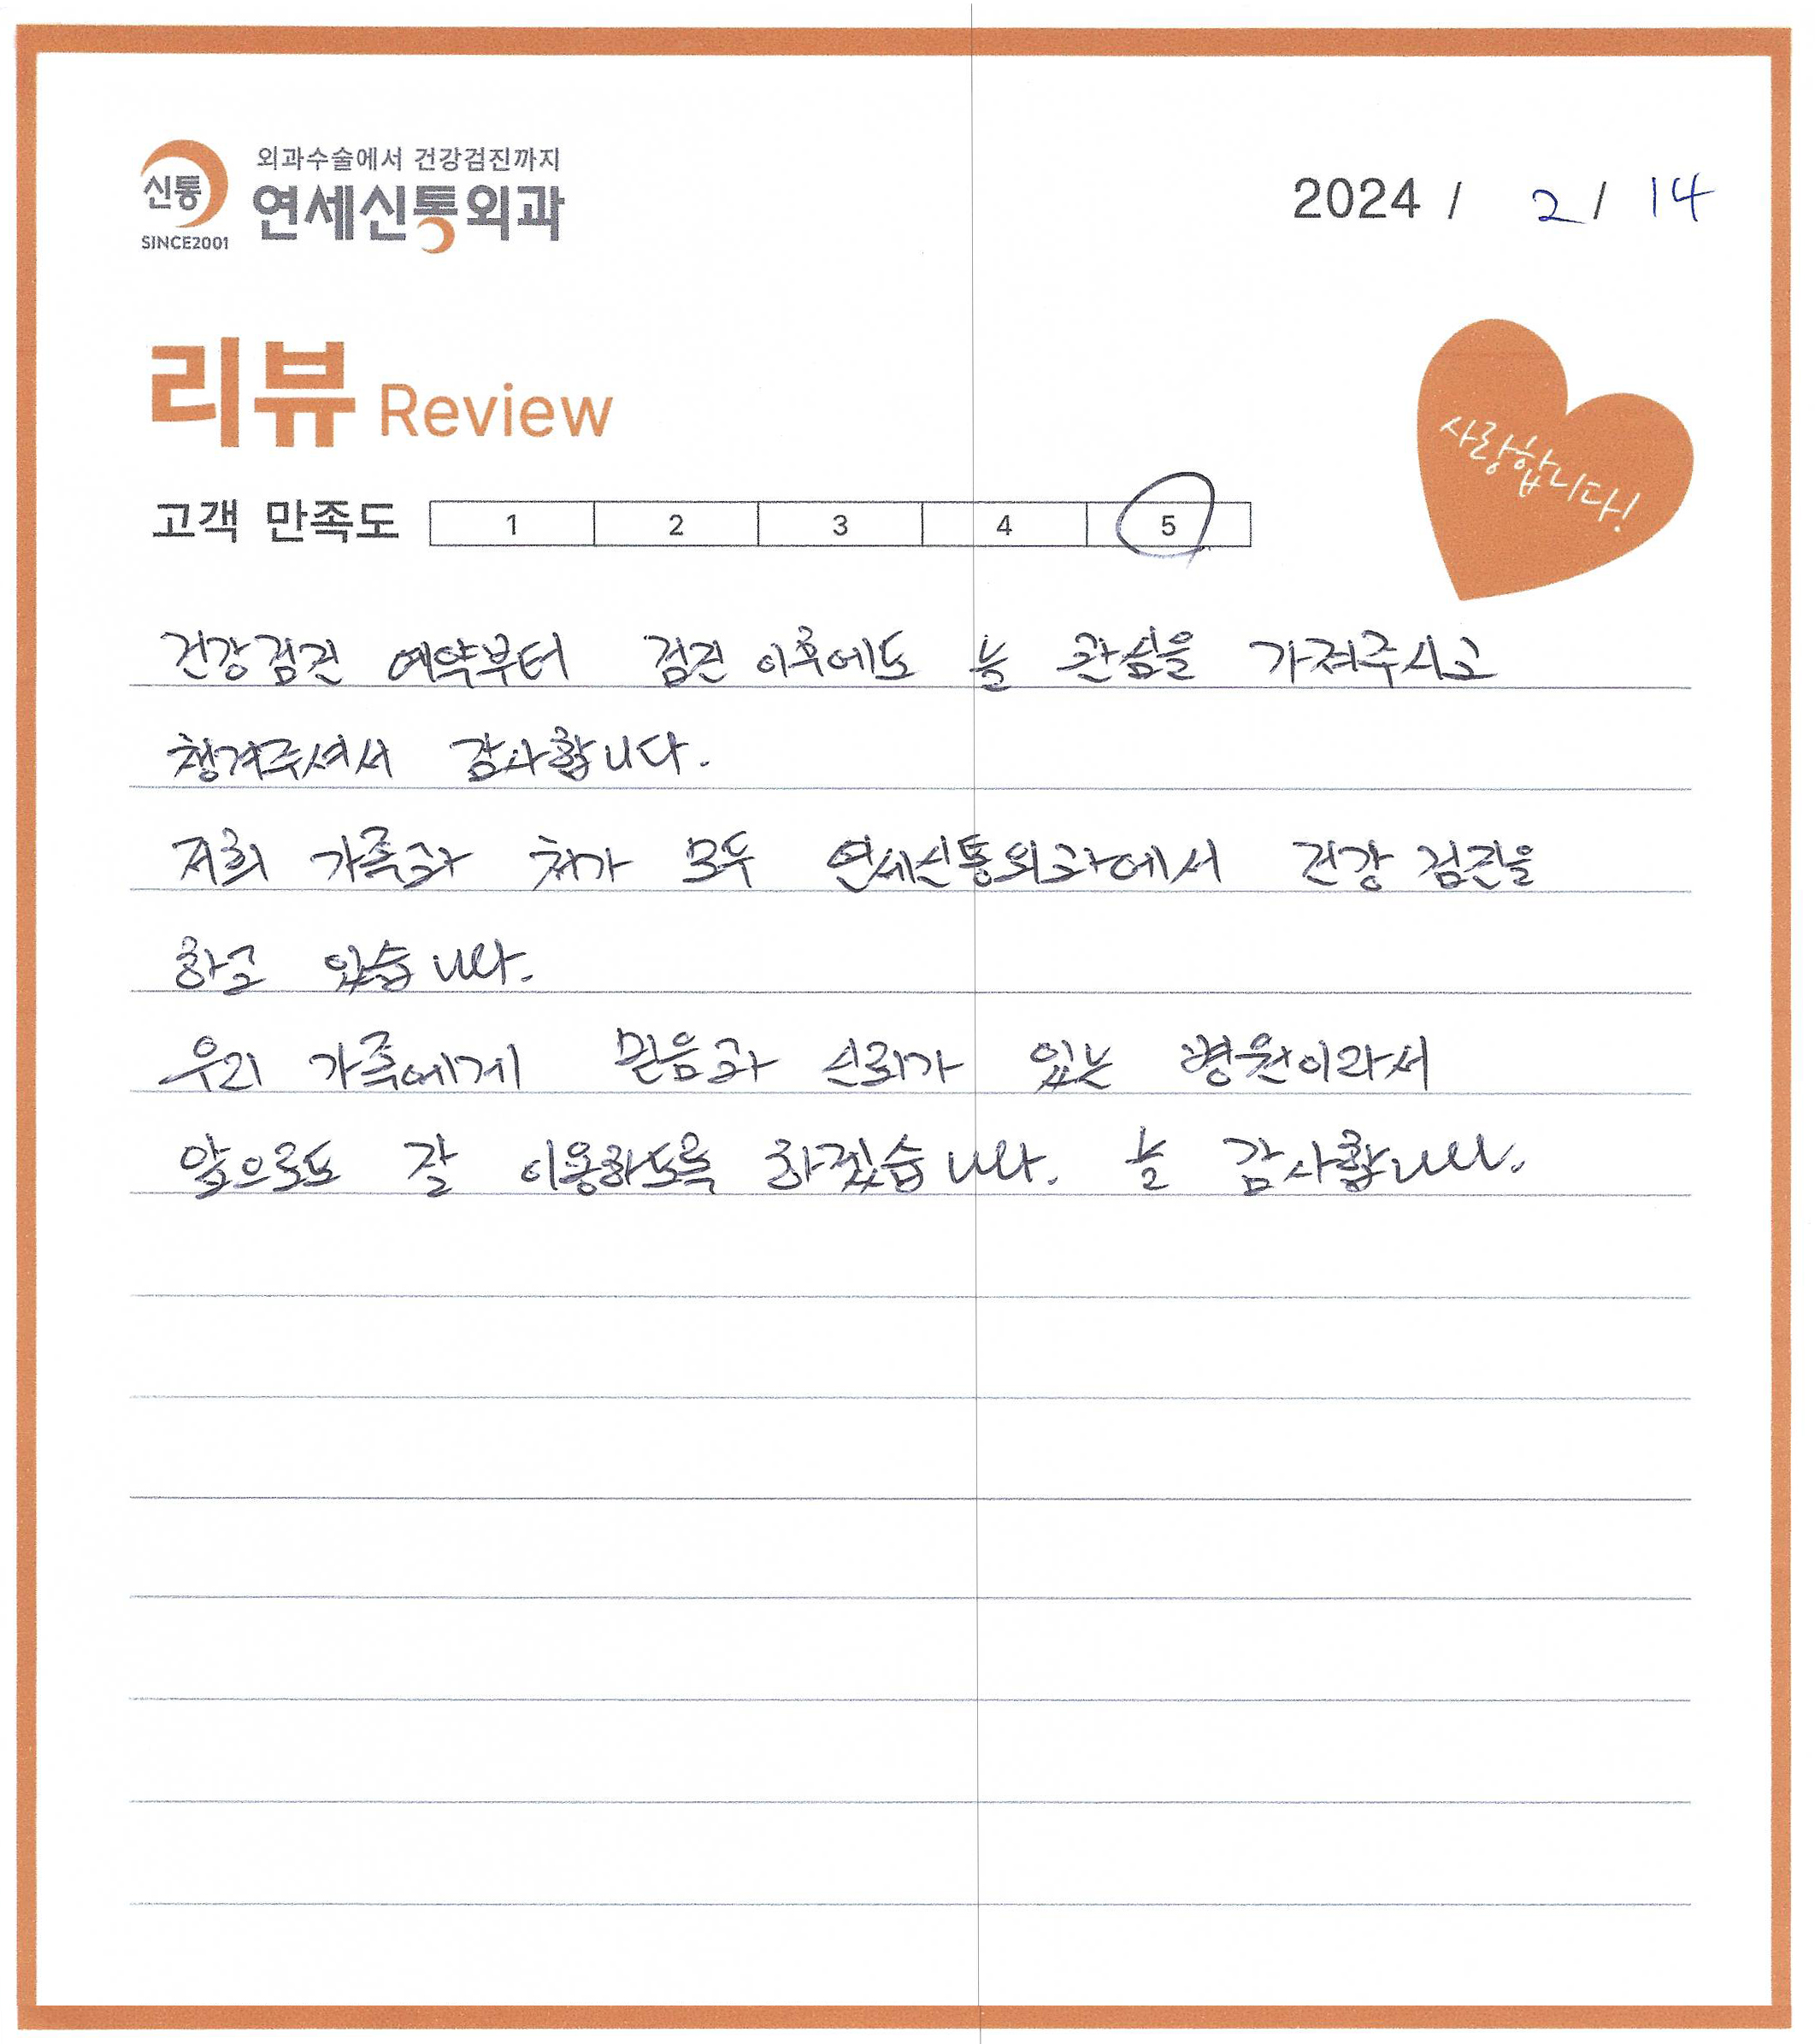 신통
SINCE2001
외과수술에서 건강검진까지
연세신통외과
2024 / 2 / 14
리뷰 Review
사랑합니다!
고객 만족도 1 2 3 4 5
건강검진 예약부터 검진 이후에도 늘 관심을 가져주시고
챙겨주셔서 감사합니다.
저희 가족과 처가 모두 연세신통외과에서 건강 검진을
하고 있습니다.
우리 가족에게 믿음과 신뢰가 있는 병원이라서
앞으로도 잘 이용하도록 하겠습니다. 늘 감사합니다.